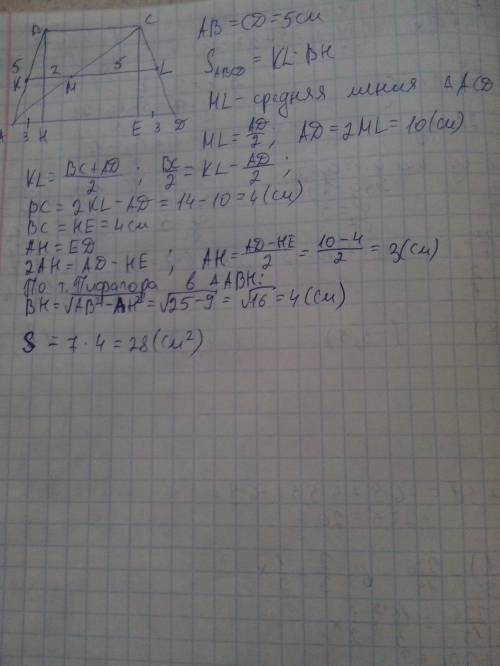 B C
AB = CD = 5см
5 2 5
K M L
S_ABCD = KL · BH
ML - средняя линия Δ ACD
A 3 H E 3 D
ML = AD/2, AD = 2ML = 10 (см)
KL = (BC + AD)/2 ; BC/2 = KL - AD/2 ;
BC = 2KL - AD = 14 - 10 = 4 (см)
BC = HE = 4 см
AH = ED
2AH = AD - HE ; AH = (AD - HE)/2 = (10 - 4)/2 = 3 (см)
По т. Пифагора в ΔABH:
BH = √(AB² - AH²) = √(25 - 9) = √16 = 4 (см)
S = 7 · 4 = 28 (см²)